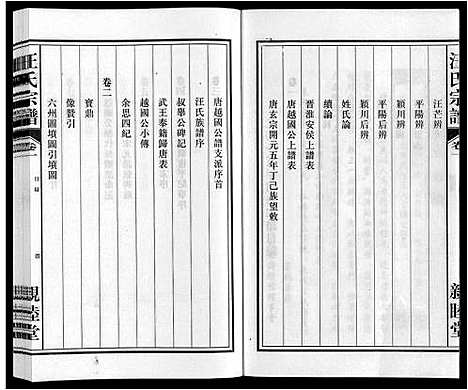 汪氏宗譜
卷一
汪芒辨
平陽辨
潁川辨
平陽后辨
潁川后辨
姓氏論
續論
晉淮安侯上譜表
唐越國公上譜表
唐玄宗開元五年丁巳族望敕
親睦堂
唐越國公譜支派序首
汪氏族譜序
叔舉公碑記
武王奉籍歸唐表
越國公小傳
余思四紀
卷二
寶鼎
像贊引
六州圖墳圖引墳圖
汪氏宗譜
卷一
目錄
親睦堂